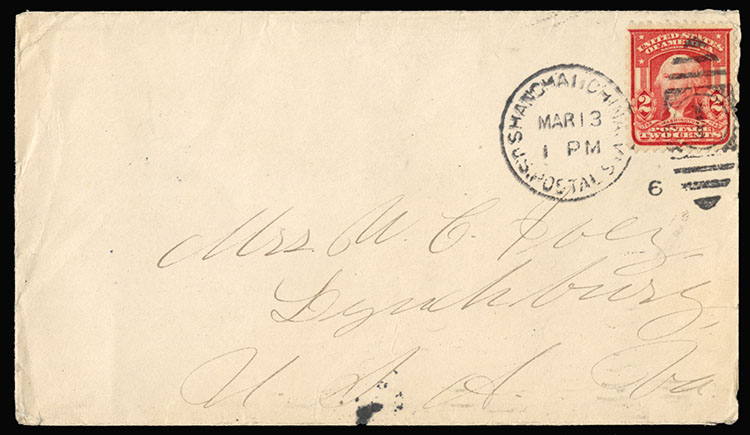 UNITED STATES
OF AMERICA
2 2
POSTAGE
TWO CENTS
SHANGHAI, CHINA U.S. POSTAL
MAR 13
1 PM
6
Mrs W. C. Ivey
Lynchburg,
U. S. A. Va.